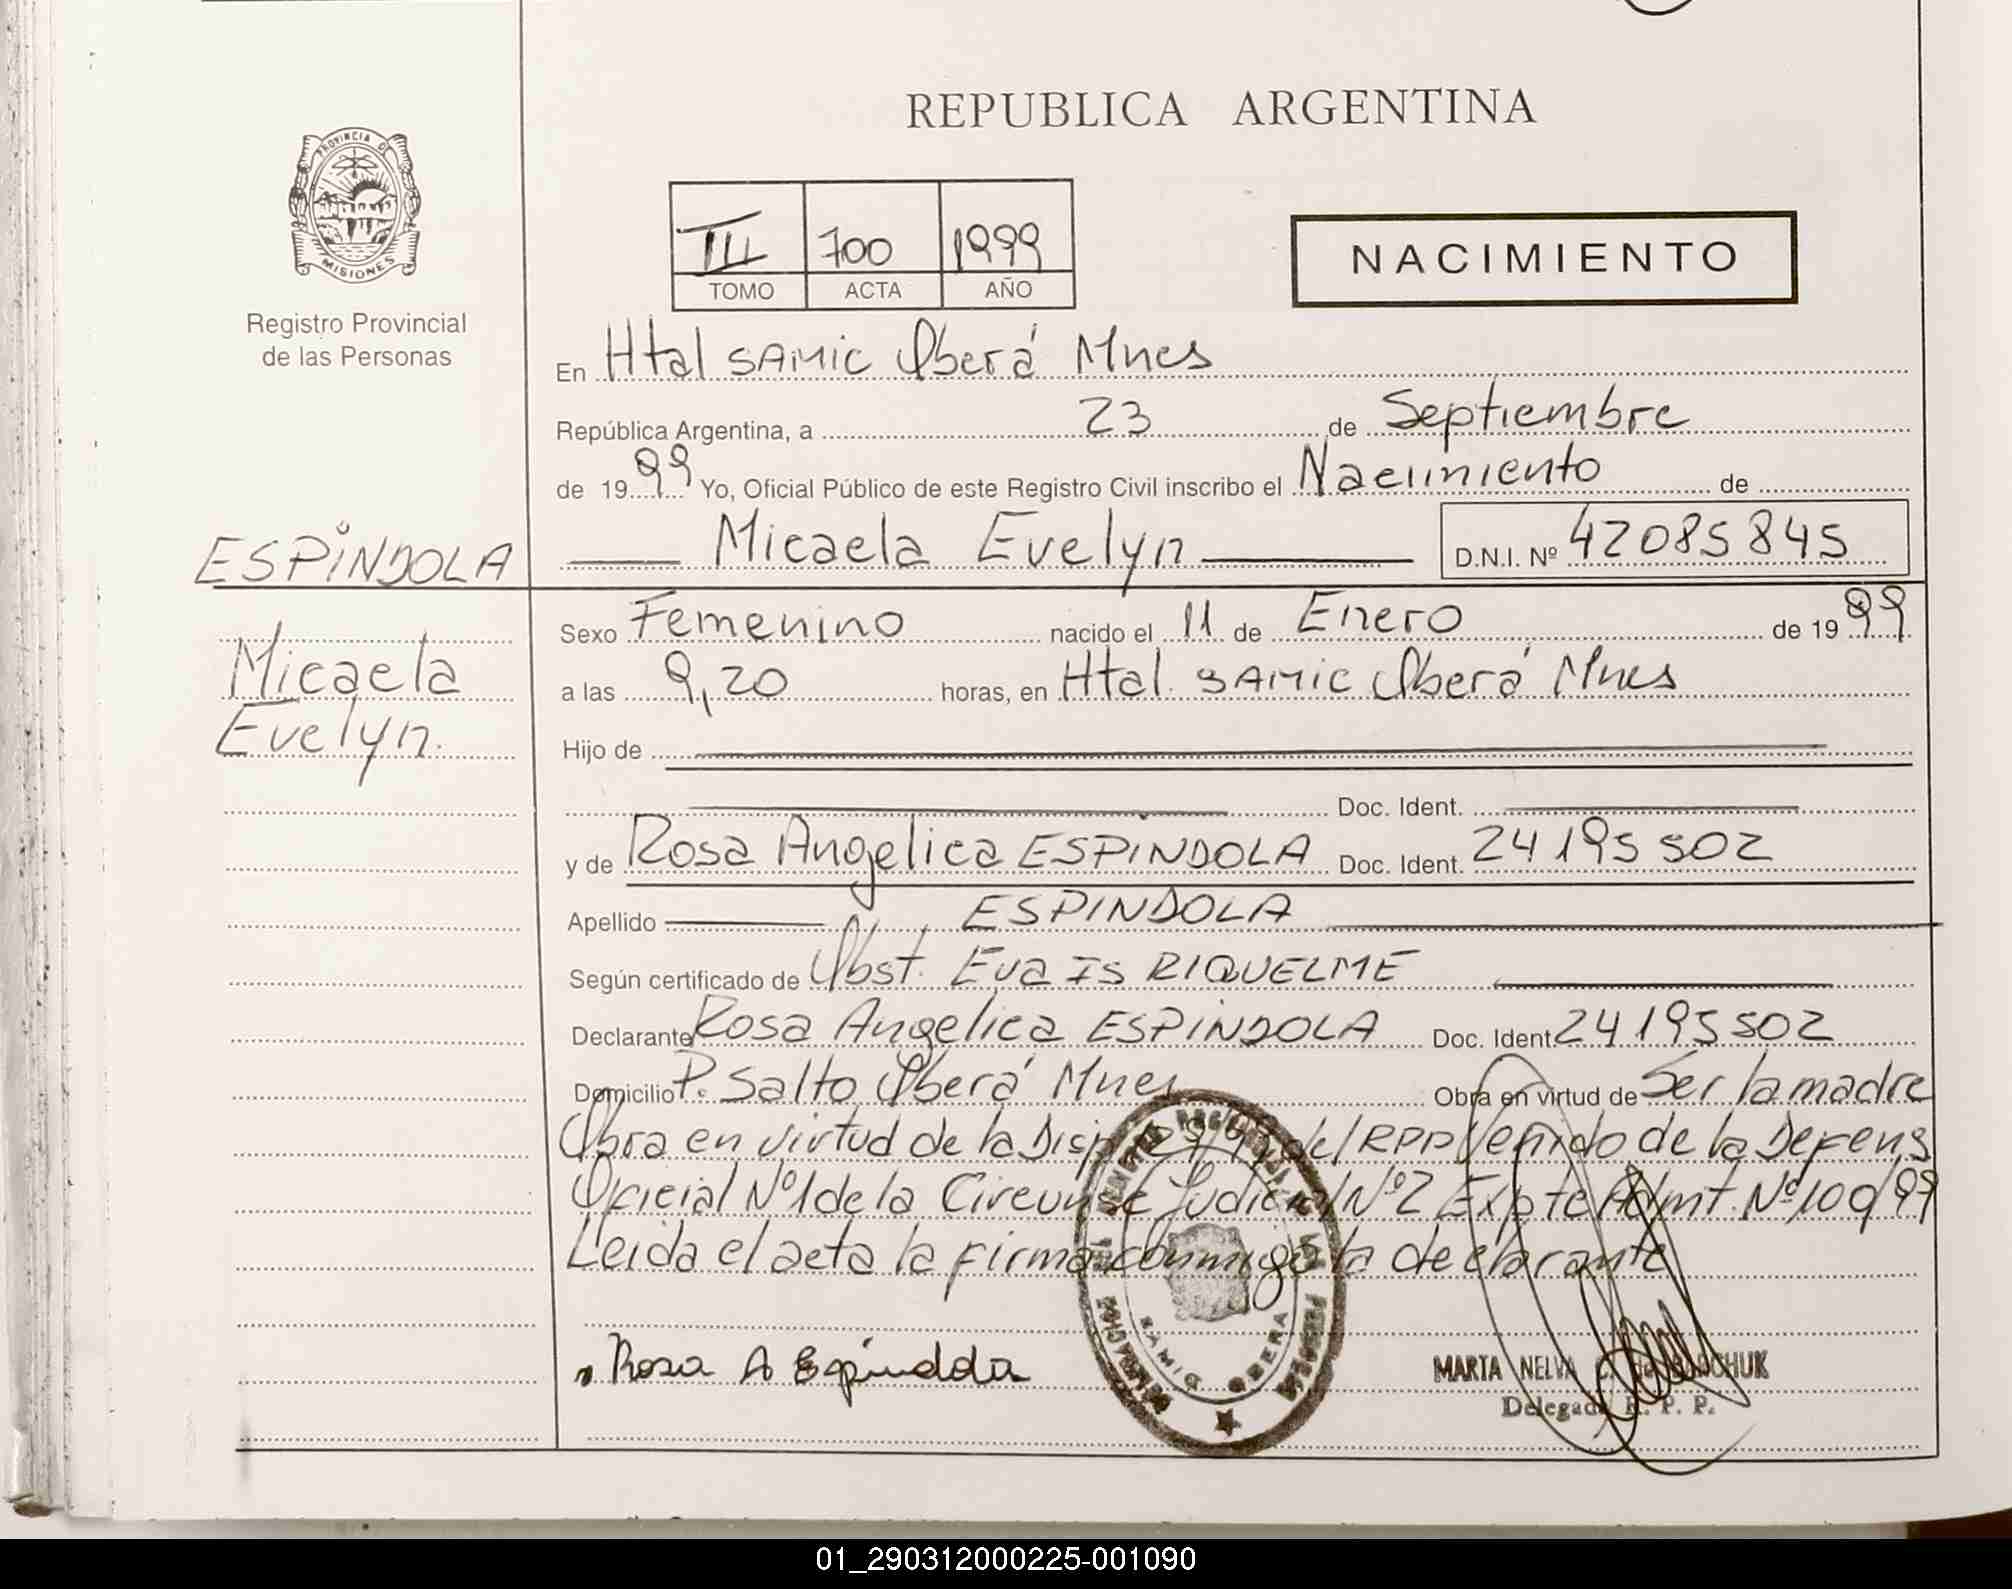 REPUBLICA ARGENTINA
PROVINCIA D
MISIONES
Registro Provincial
de las Personas
III 700 1999
TOMO ACTA AÑO
NACIMIENTO
En Htal SAMIC Oberá Mnes
República Argentina, a 23 de Septiembre
de 1999 Yo, Oficial Público de este Registro Civil inscribo el Nacimiento de
Micaela Evelyn D.N.I. Nº 42085845
ESPINDOLA
Micaela
Evelyn.
Sexo Femenino nacido el 11 de Enero de 1999
a las 9,20 horas, en Htal. SAMIC Oberá Mnes
Hijo de
Doc. Ident.
y de Rosa Angelica ESPINDOLA Doc. Ident. 24195502
Apellido ESPINDOLA
Según certificado de Obst. Eva IS RIQUELME
Declarante Rosa Angelica ESPINDOLA Doc. Ident 24195502
Domicilio P. Salto Oberá Mnes Obra en virtud de Ser la madre
Obra en virtud de la Disp del RPP Venido de la Defens
Oficial Nº1 de la Circunsc Judicial Nº2 Expte Admt. Nº 100/99
Leida el acta la firma conmigo la declarante
Rosa A Espindola
SAMIC OBERA
MARTA NELVA C.
Delegada R. P. P.
01_290312000225-001090